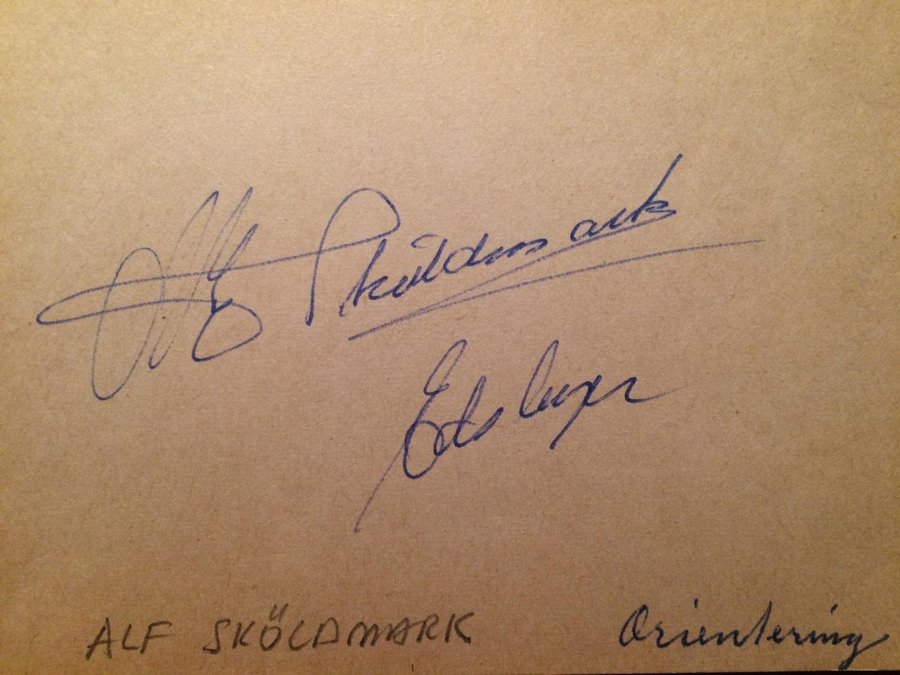 Alf Sköldmark
Edsbyn
ALF SKÖLDMARK
Orientering